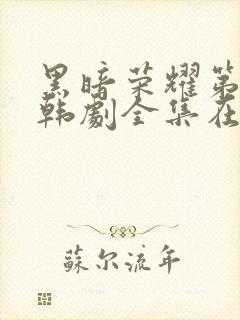 黑暗荣耀第
韩劇全集在
蘇尔流年